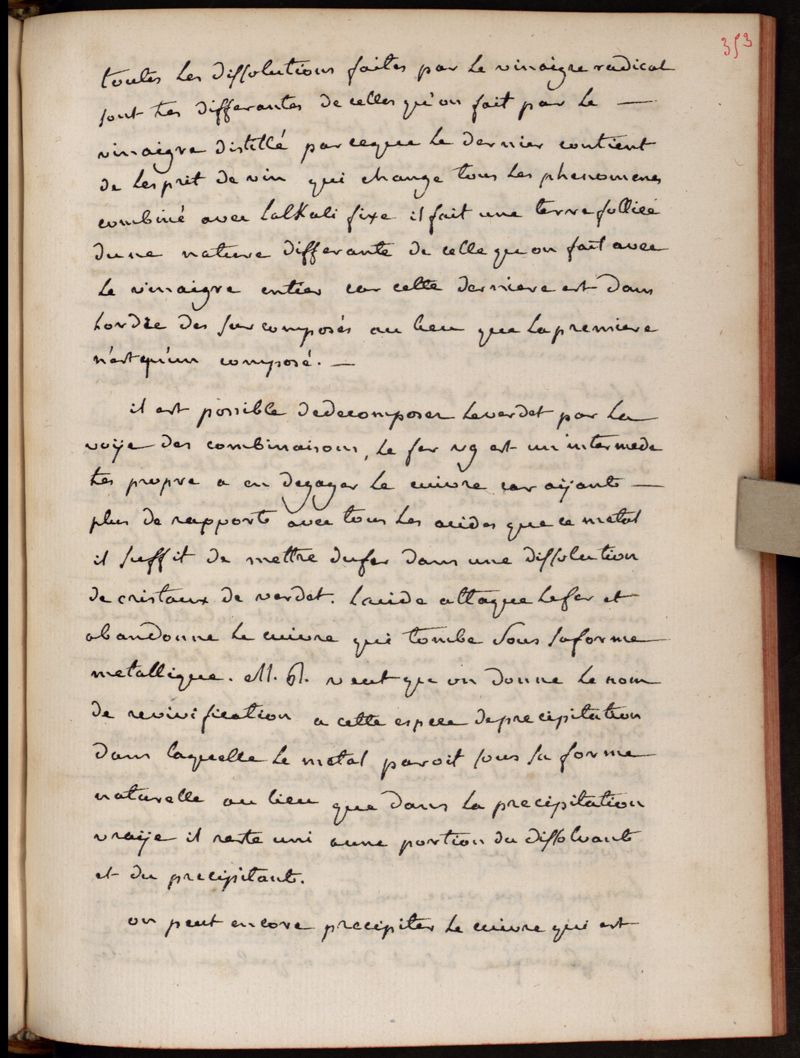 353
toutes les dissolutions faites par le vinaigre radical
sont tres differantes de celles qu'on fait par le —
vinaigre distillé parceque le dernier contient
de lesprit de vin qui change tous les phenomenes
combiné avec lalkali fixe il fait une terre folliée
dune nature differante de celle qu on fait avec
le vinaigre entier car cette derniere est dans
lordre des surcomposés au lieu que la premiere
n'est qu'un composé. —
il est possible dedecomposer leverdet par la
voije des combinaisons, le fer vg est un intermede
tes propre a en degager le cuivre car aijant —
plus de rapport avec tous les acides que ce metal
il suffit de mettre dufer dans une dissolution
de cristaux de verdet. lacide attaque lefer et
abandonne le cuivre qui tombe sous saforme
metallique. M. R. veut qu on donne le nom
de revivification a cette espece deprecipitation
dans laquelle le metal paroit sous sa forme
naturelle au lieu que dans la precipitation
vraije il reste uni aune portion du dissolvant
et du precipitant.
on peut encore precipiter le cuivre qui est